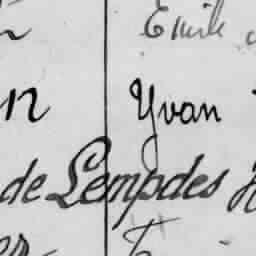 Emile
n Yvan
de Lempdes
er